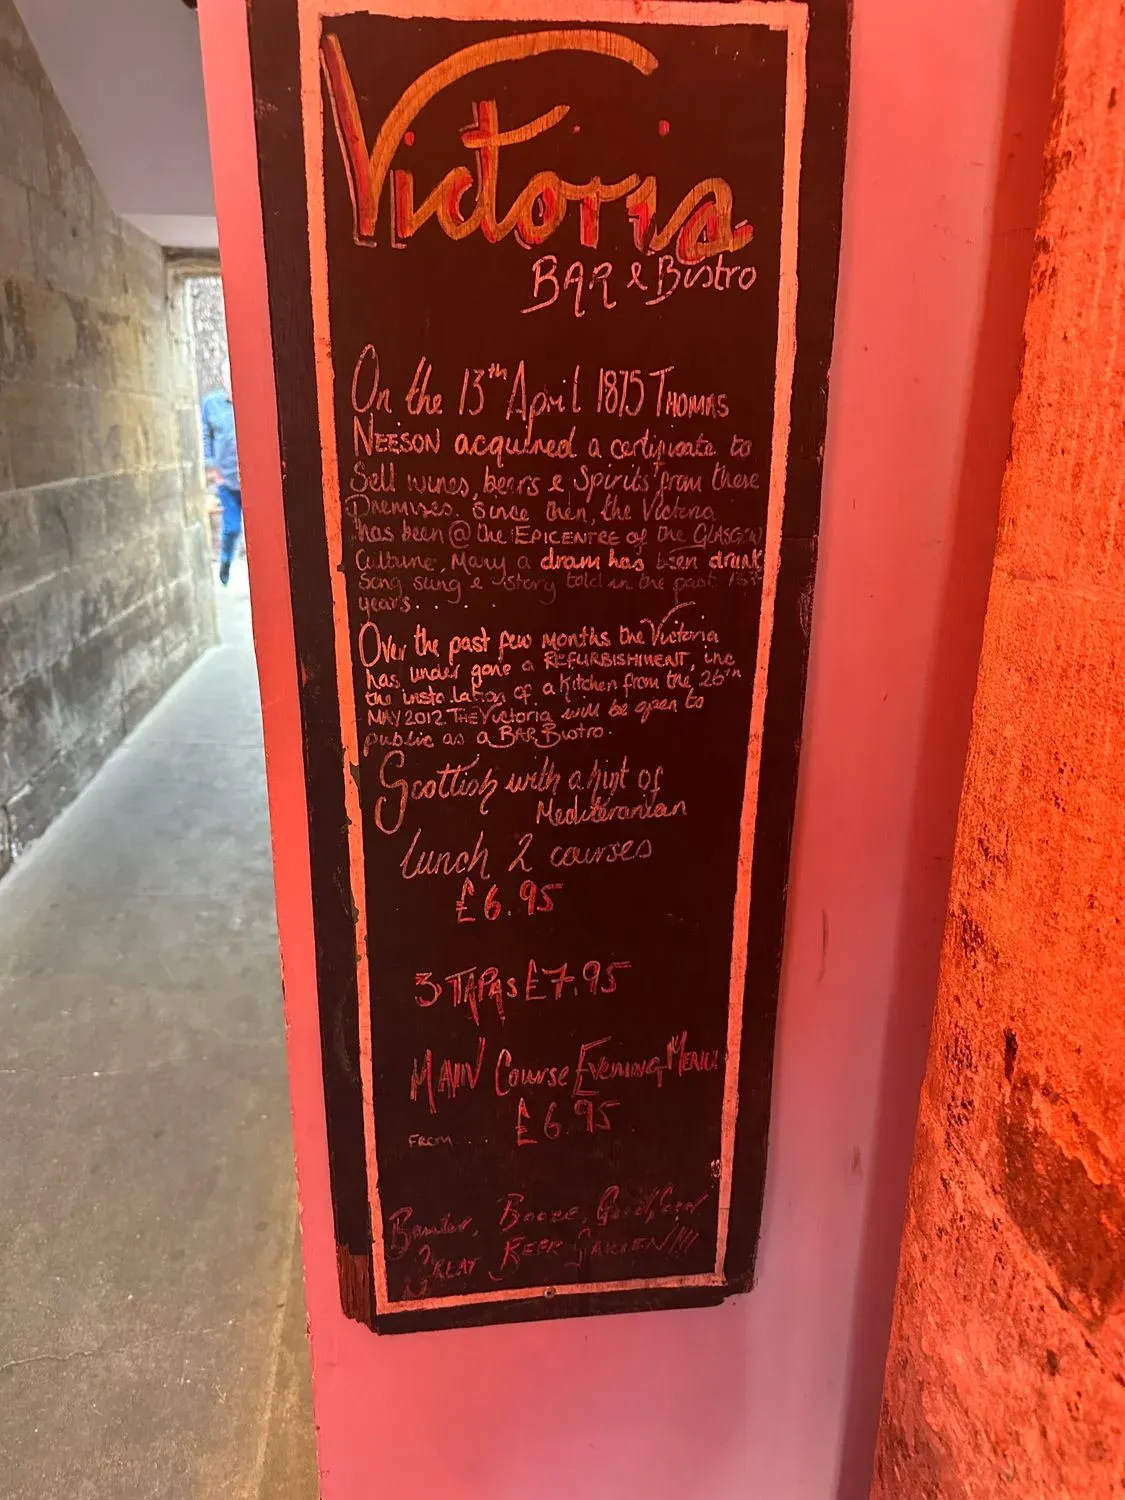 Victoria
BAR & Bistro
On the 13th April 1875 THOMAS
NEESON acquired a certificate to
Sell wines, beers & Spirits from these
Premises. Since then, the Victoria
has been @ the EPICENTRE of the GLASGOW
Culture, Many a dram has been drunk
Song sung & story told in the past
years. . . . .
Over the past few MONTHS the Victoria
has under gone a REFURBISHMENT, inc
the installation of a kitchen from the 26th
MAY 2012 THE Victoria will be open to
public as a BAR Bistro.
Scottish with a hint of
Mediteranian
Lunch 2 courses
£6.95
3 TAPAS £7.95
MAIN Course Evening MENU
FROM . . . £6.95
Banter, Booze, Good
GREAT BEER GARDEN!!!